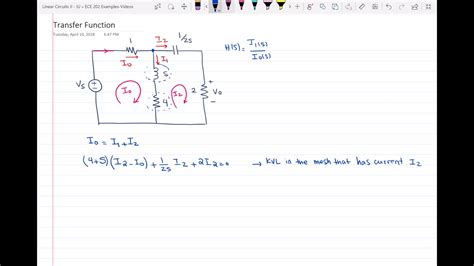 Linear Circuits II - SJ - ECE 202 Examples-Videos
Transfer Function
Tuesday, April 10, 2018 6:47 PM
1
I2
1/2s
I0
I1
S
H(s) = I1(s)/I0(s)
Vs
I0
4
I2
2
+
Vo
-
I0 = I1 + I2
(4+S)(I2-I0) + 1/2s I2 + 2I2 = 0 → KVL in the mesh that has current I2